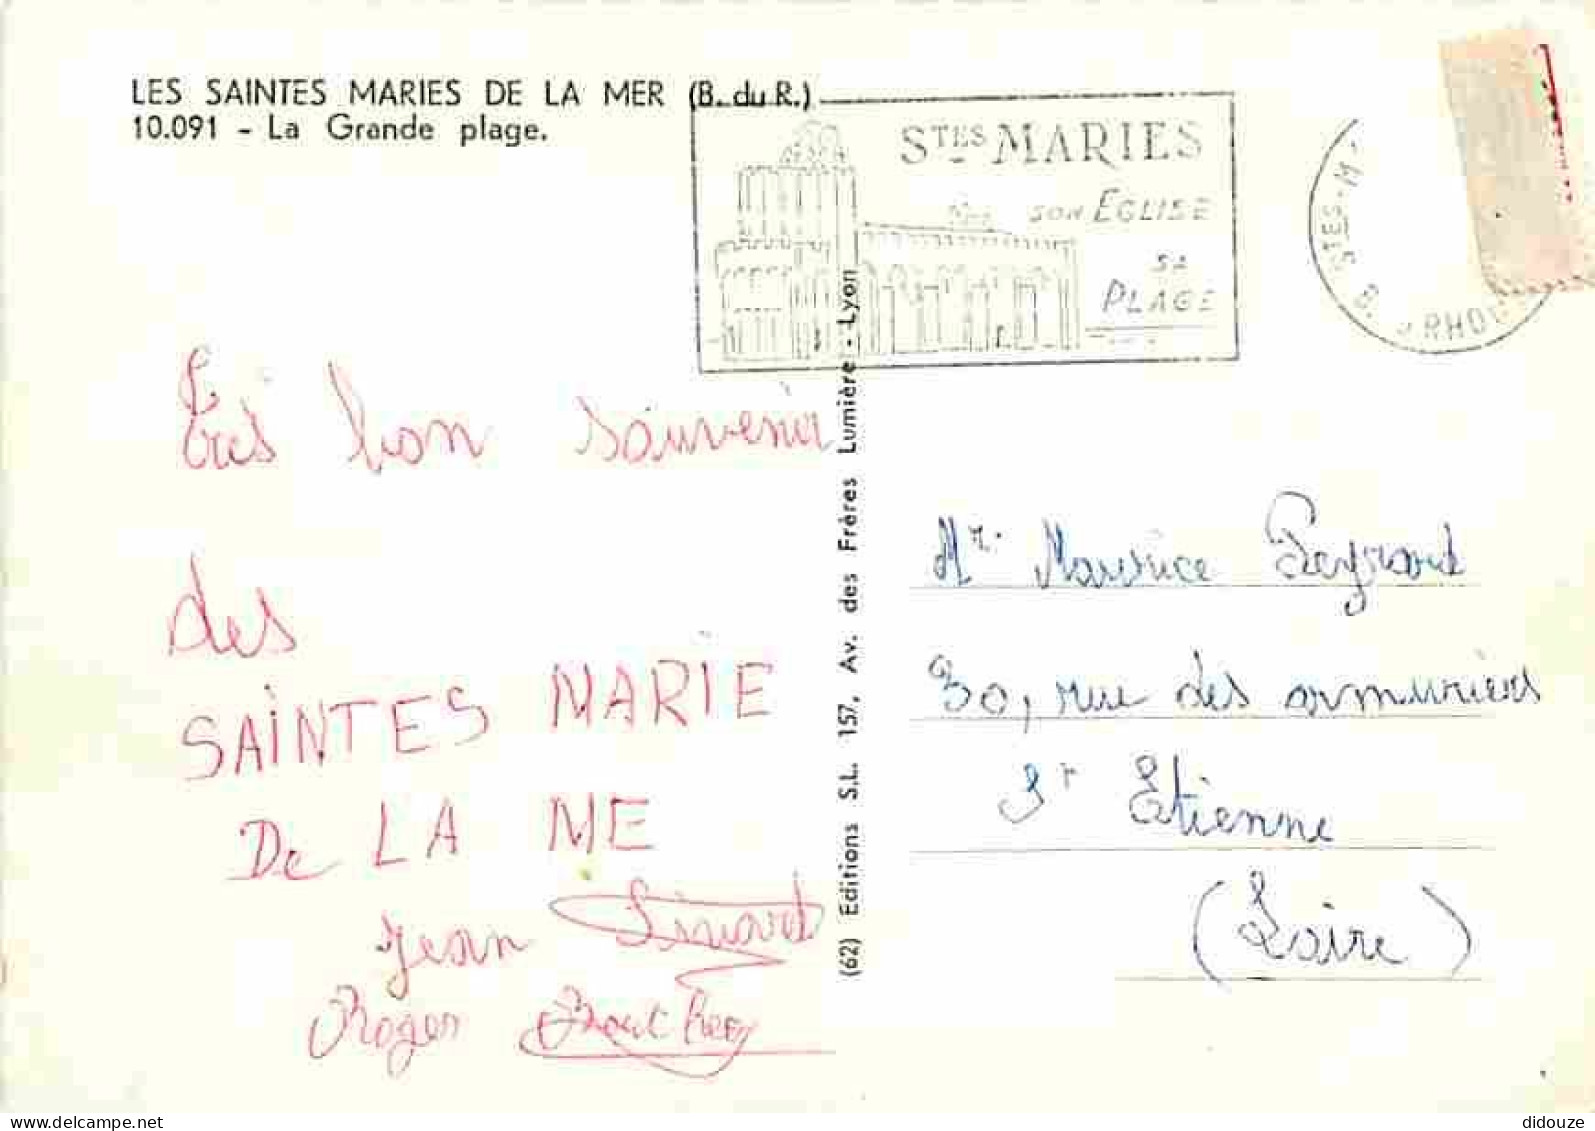 LES SAINTES MARIES DE LA MER (B. du R.)
10.091 - La Grande plage.
STES MARIES
SON EGLISE
SA
PLAGE
STES-M
B. RHO
Très bon souvenir
des
SAINTES MARIE
De LA ME
Jean Sinard
Roger
(62) Editions S.L. 157, Av. des Frères Lumière - Lyon
Mr. Maurice Peyrard
30, rue des armuriers
St Etienne
(Loire)
didouze